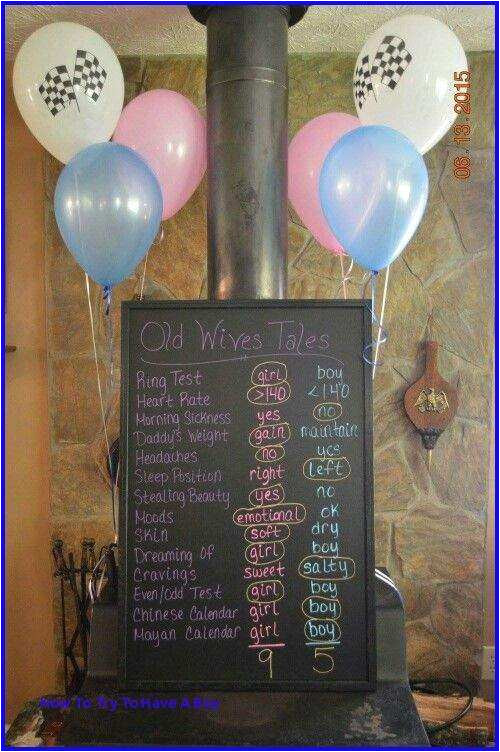 06 13 2015
Old Wives Tales
Ring Test girl boy
Heart Rate >140 <140
Morning Sickness yes no
Daddy's Weight gain maintain
Headaches no yes
Sleep Position right left
Stealing Beauty yes no
Moods emotional ok
Skin soft dry
Dreaming Of girl boy
Cravings sweet salty
Even/Odd Test girl boy
Chinese Calendar girl boy
Mayan Calendar girl boy
9 5
How To Try To Have A Boy